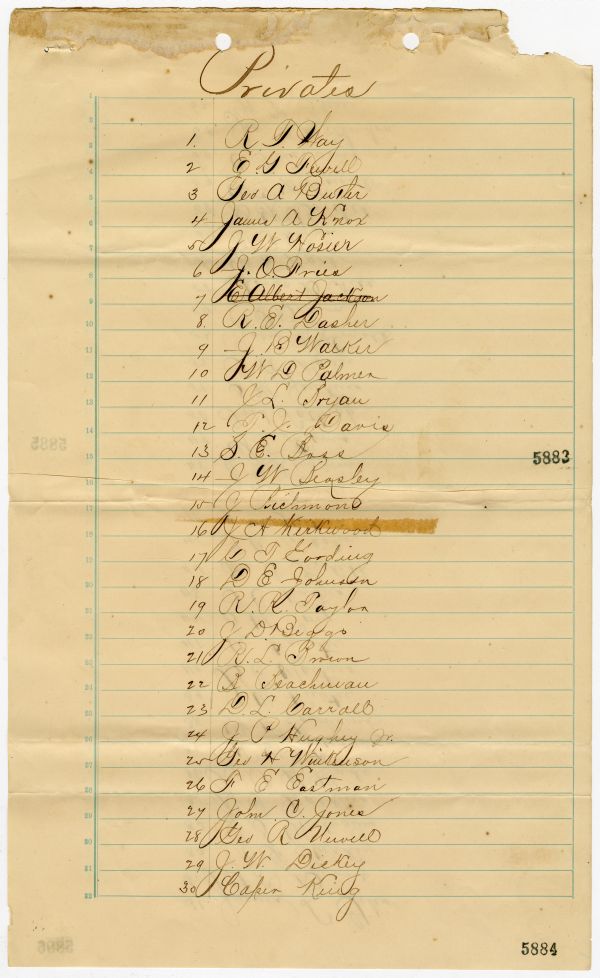 Privates
1. R. T. Way
2 E. G. Fewell
3 Geo A Butler
4 James A Knox
5 J W Hosier
6 J. O. Fries
7 E Albert Jackson
8. R. E. Dasher
9 J. B Walker
10 W D Palmer
11 J L. Bryan
12 T. J. Davis
13 S. E. Boss
14 J W Beasley
15 J Richmond
16 J A Kirkwood
17 T Gording
18 D E Johnson
19 R. R. Taylor
20 J D. Beggs
21 R. L. Brown
22 B Beacham
23 D. L. Carroll
24 J P Hughey Jr.
25 Geo H Wilkinson
26 F E Eastman
27 John C. Jones
28 Geo R Newell
29 J. W. Dickey
30 Caper King
5883
5884